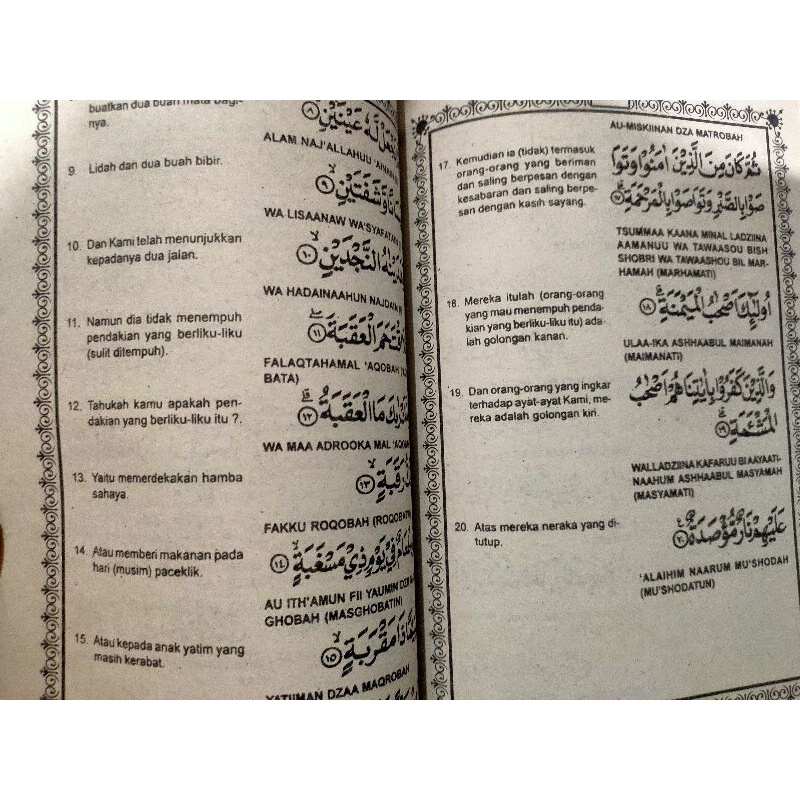 buatkan dua buah mata bagi-
nya.
عَيْنَيْنِ ٨
ALAM NAJ'ALLAHUU
9. Lidah dan dua buah bibir.
وَشَفَتَيْنِ ٩
WA LISAANAW WA'SYAFATAN
10. Dan Kami telah menunjukkan
kepadanya dua jalan.
النَّجْدَيْنِ ١٠
WA HADAINAAHUN NAJDAIN
11. Namun dia tidak menempuh
pendakian yang berliku-liku
(sulit ditempuh).
الْعَقَبَةَ ١١
FALAQTAHAMAL 'AQOBAH
BATA)
12. Tahukah kamu apakah pen-
dakian yang berliku-liku itu ?.
مَا الْعَقَبَةُ ١٢
WA MAA ADROOKA MAL 'AQOB
13. Yaitu memerdekakan hamba
sahaya.
رَقَبَةٍ ١٣
FAKKU ROQOBAH (ROQOBATIN
14. Atau memberi makanan pada
hari (musim) paceklik.
فِيْ يَوْمٍ ذِيْ مَسْغَبَةٍ ١٤
AU ITH'AMUN FII YAUMIN DZII
GHOBAH (MASGHOBATIN)
15. Atau kepada anak yatim yang
masih kerabat.
ذَا مَقْرَبَةٍ ١٥
YATIIMAN DZAA MAQROBAH
AU-MISKIINAN DZA MATROBAH
17. Kemudian ia (tidak) termasuk
orang-orang yang beriman
dan saling berpesan dengan
kesabaran dan saling berpe-
san dengan kasih sayang.
ثُمَّ كَانَ مِنَ الَّذِيْنَ اٰمَنُوْا وَتَوَا
صَوْا بِالصَّبْرِ وَتَوَاصَوْا بِالْمَرْحَمَةِ ١٧
TSUMMAA KAANA MINAL LADZIINA
AAMANUU WA TAWAASOU BISH
SHOBRI WA TAWAASHOU BIL MAR-
HAMAH (MARHAMATI)
18. Mereka itulah (orang-orang
yang mau menempuh penda-
kian yang berliku-liku itu) ada-
lah golongan kanan.
اُولٰۤىِٕكَ اَصْحٰبُ الْمَيْمَنَةِ ١٨
ULAA-IKA ASHHAABUL MAIMANAH
(MAIMANATI)
19. Dan orang-orang yang ingkar
terhadap ayat-ayat Kami, me-
reka adalah golongan kiri.
وَالَّذِيْنَ كَفَرُوْا بِاٰيٰتِنَا هُمْ اَصْحٰبُ
الْمَشْئَمَةِ ١٩
WALLADZIINA KAFARUU BI AAYAATI-
NAAHUM ASHHAABUL MASYAMAH
(MASYAMATI)
20. Atas mereka neraka yang di-
tutup.
عَلَيْهِمْ نَارٌ مُّؤْصَدَةٌ ٢٠
'ALAIHIM NAARUM MU'SHODAH
(MU'SHODATUN)